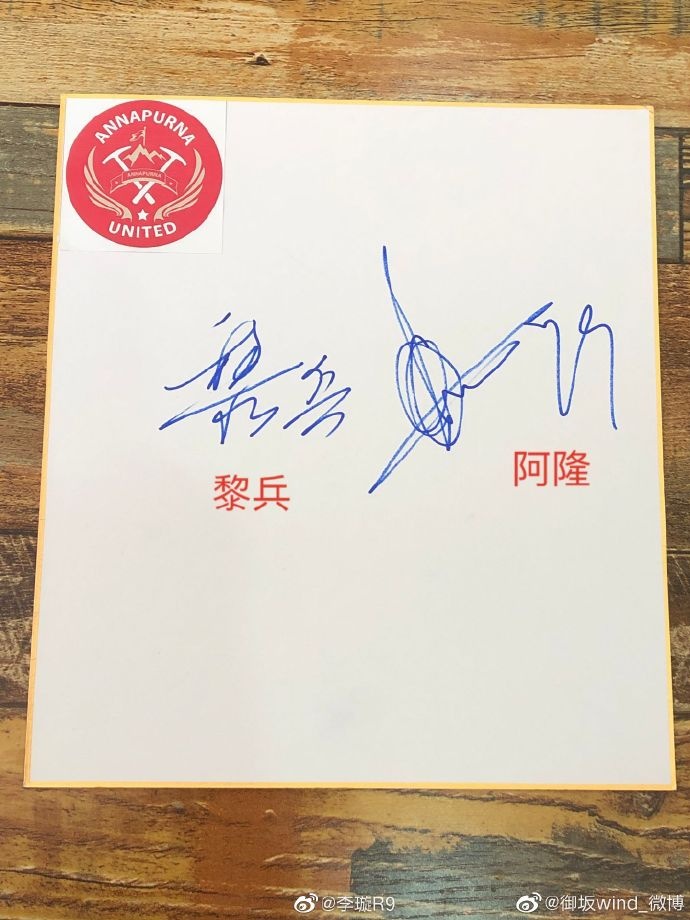 ANNAPURNA
ANNAPURNA
UNITED
黎兵
黎兵
阿隆
@李璇R9
@御坂wind_微博